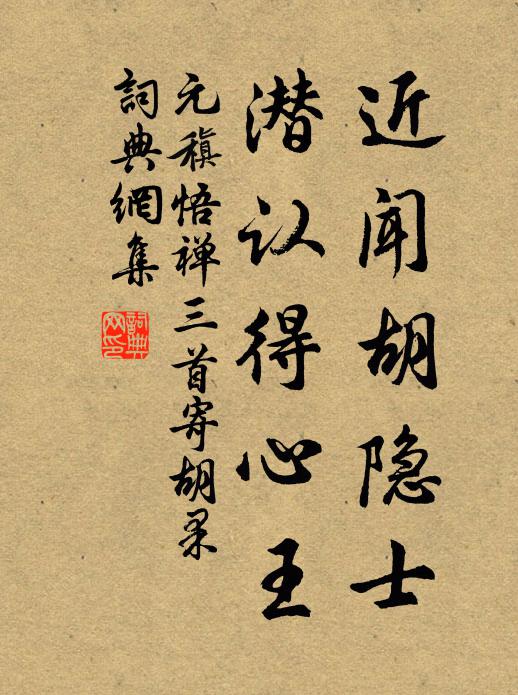 近闻胡隐士
潜认得心王
元稹悟禅三首寄胡杲
詞典網集
詞典网印